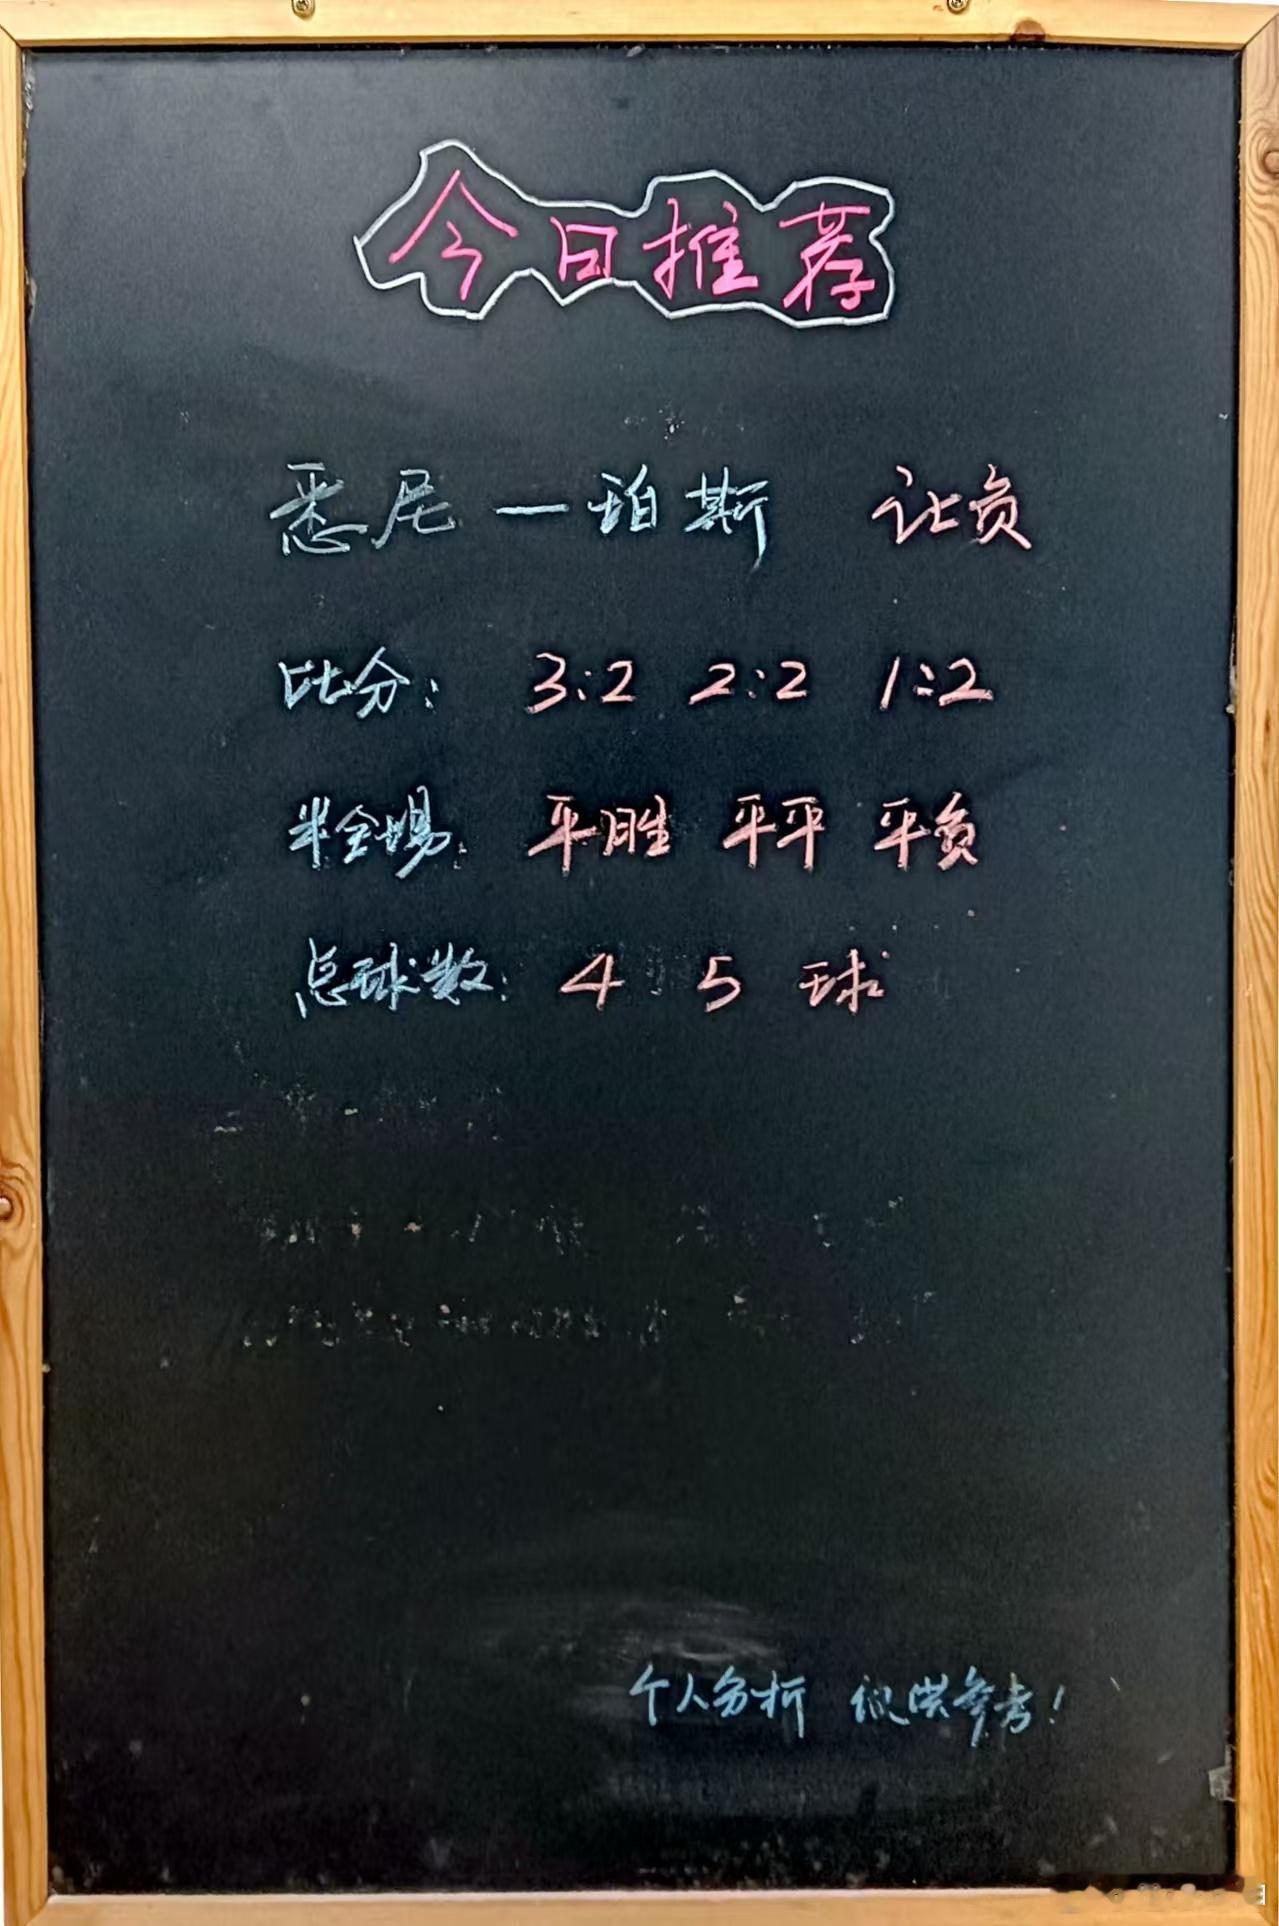 今日推荐
悉尼—珀斯 让负
比分: 3:2 2:2 1:2
半全場: 平胜 平平 平负
总球数: 4 5 球
个人分析 仅供参考!